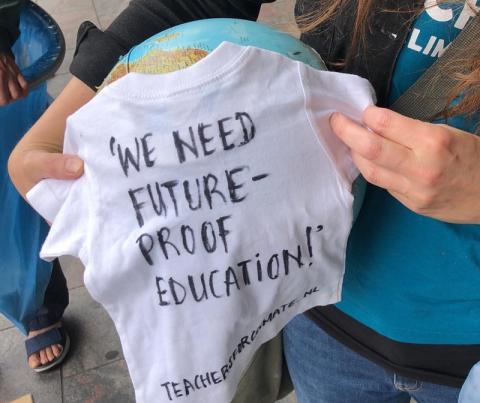 'WE NEED
FUTURE-
PROOF
EDUCATION!'
TEACHERSFORCLIMATE.NL
LIM